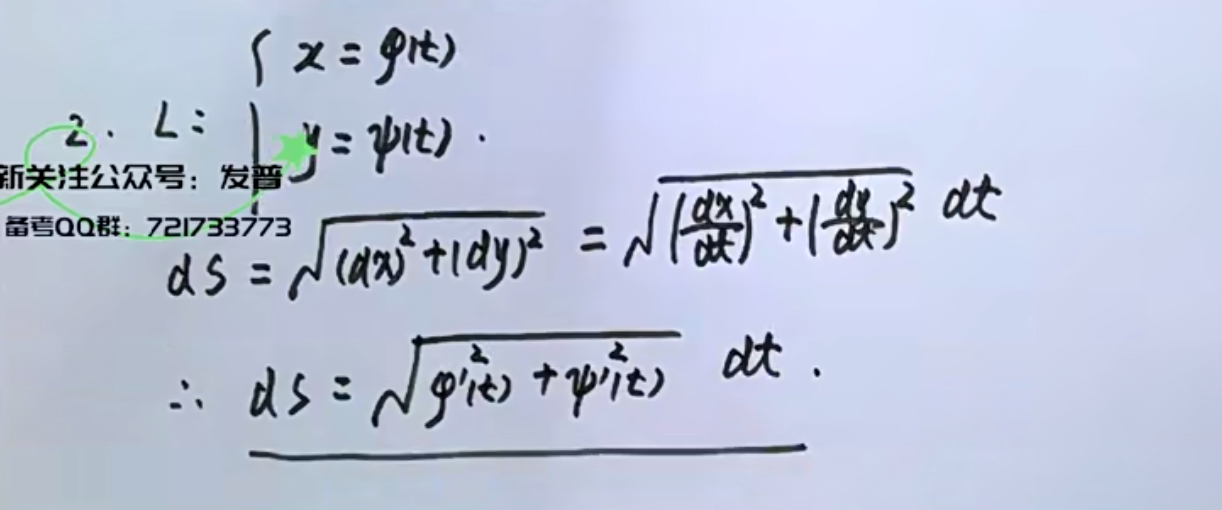 { x = φ(t)
2. L: y = ψ(t).
新关注公众号：发普
备考QQ群：721733773
ds = √((dx)² + (dy)²) = √((dx/dt)² + (dy/dt)²) dt
∴ ds = √(φ'²(t) + ψ'²(t)) dt.